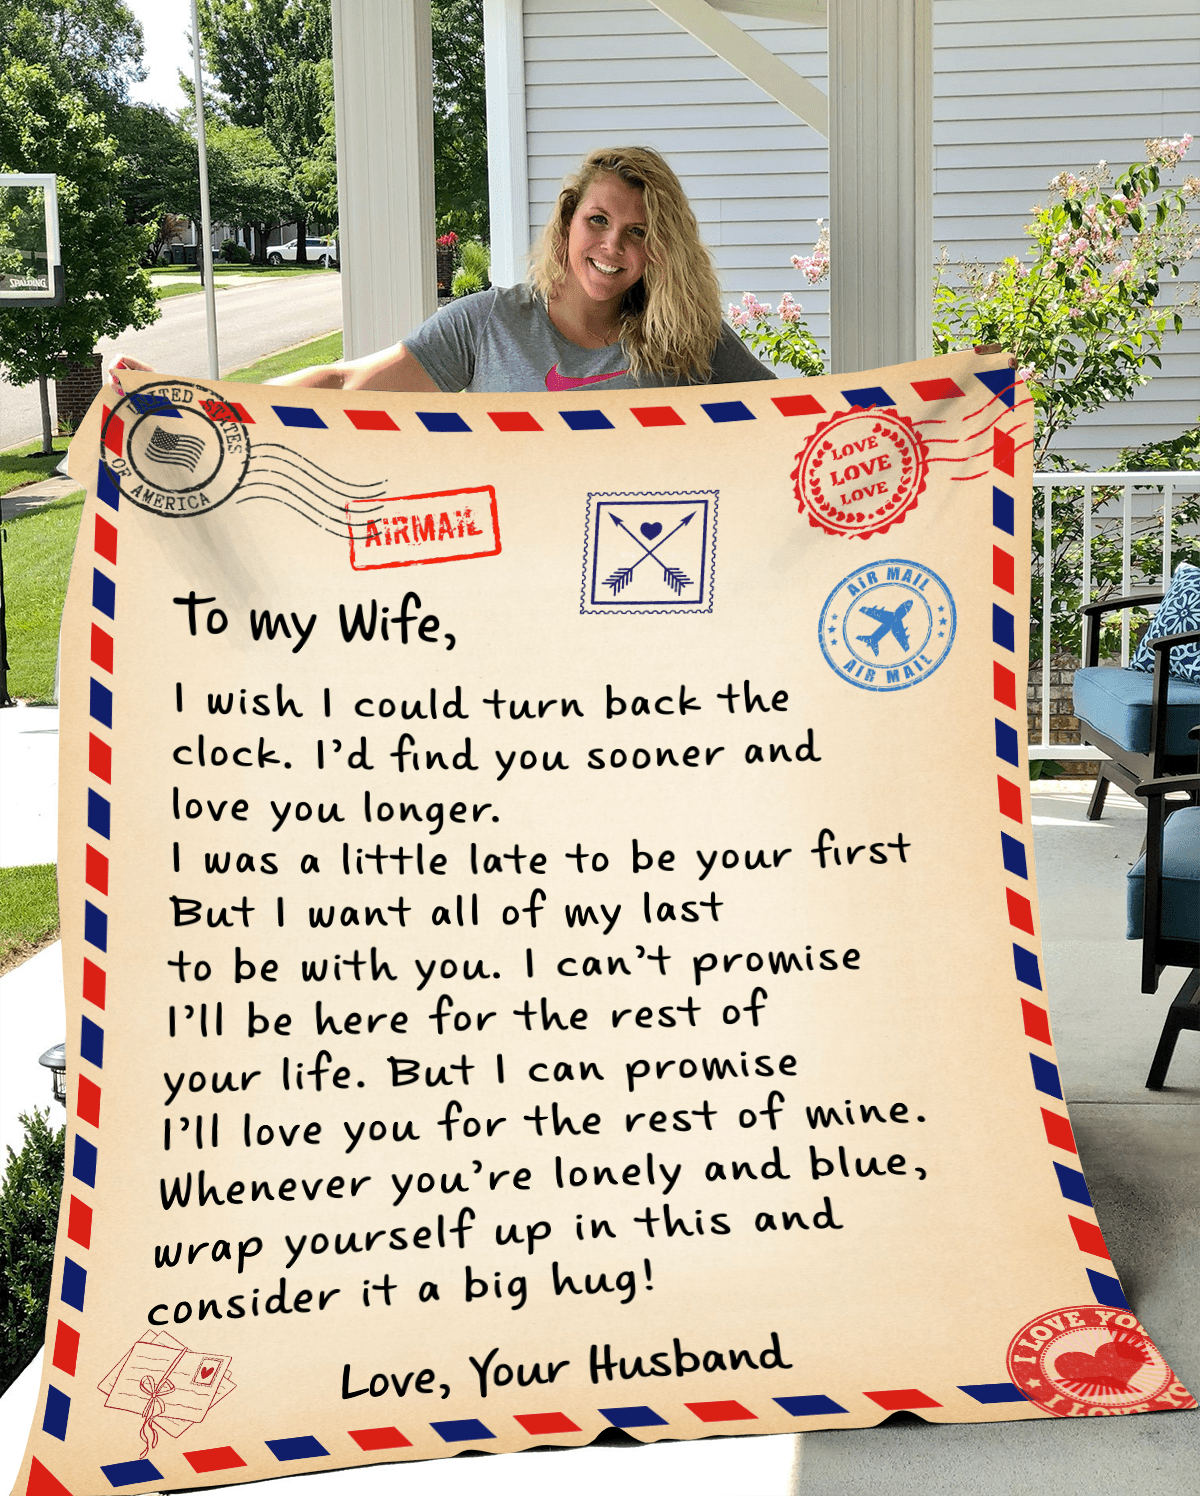 SPALDING
UNITED STATES
OF AMERICA
AIRMAIL
LOVE
LOVE
LOVE
AIR MAIL
AIR MAIL
To my Wife,
I wish I could turn back the
clock. I'd find you sooner and
love you longer.
I was a little late to be your first
But I want all of my last
to be with you. I can't promise
I'll be here for the rest of
your life. But I can promise
I'll love you for the rest of mine.
Whenever you're lonely and blue,
wrap yourself up in this and
consider it a big hug!
Love, Your Husband
I LOVE YOU
I LOVE YO